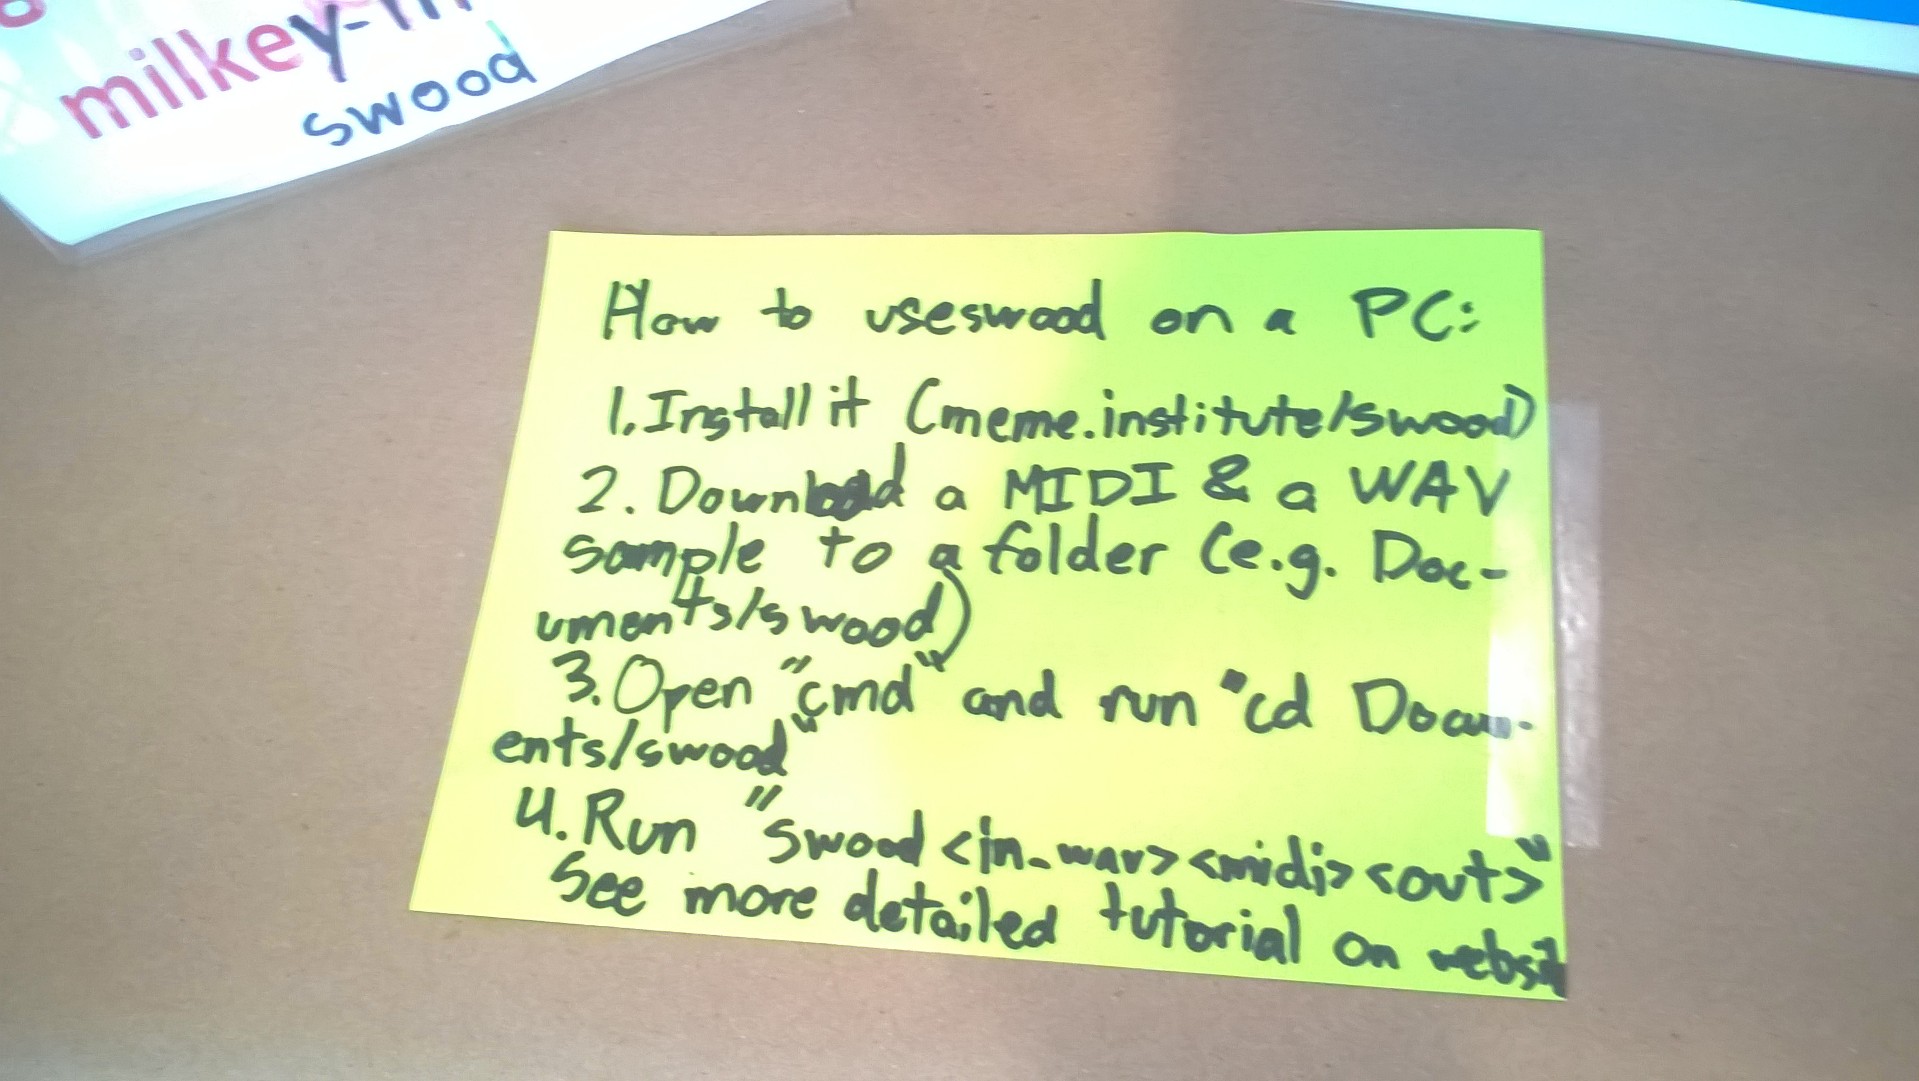 milkey-m
swood
How to use swood on a PC:
1. Install it (meme.institute/swood)
2. Download a MIDI & a WAV
sample to a folder (e.g. Doc-
uments/swood)
3. Open "cmd" and run "cd Docum-
ents/swood"
4. Run "swood <in_wav> <midi> <out>"
See more detailed tutorial on